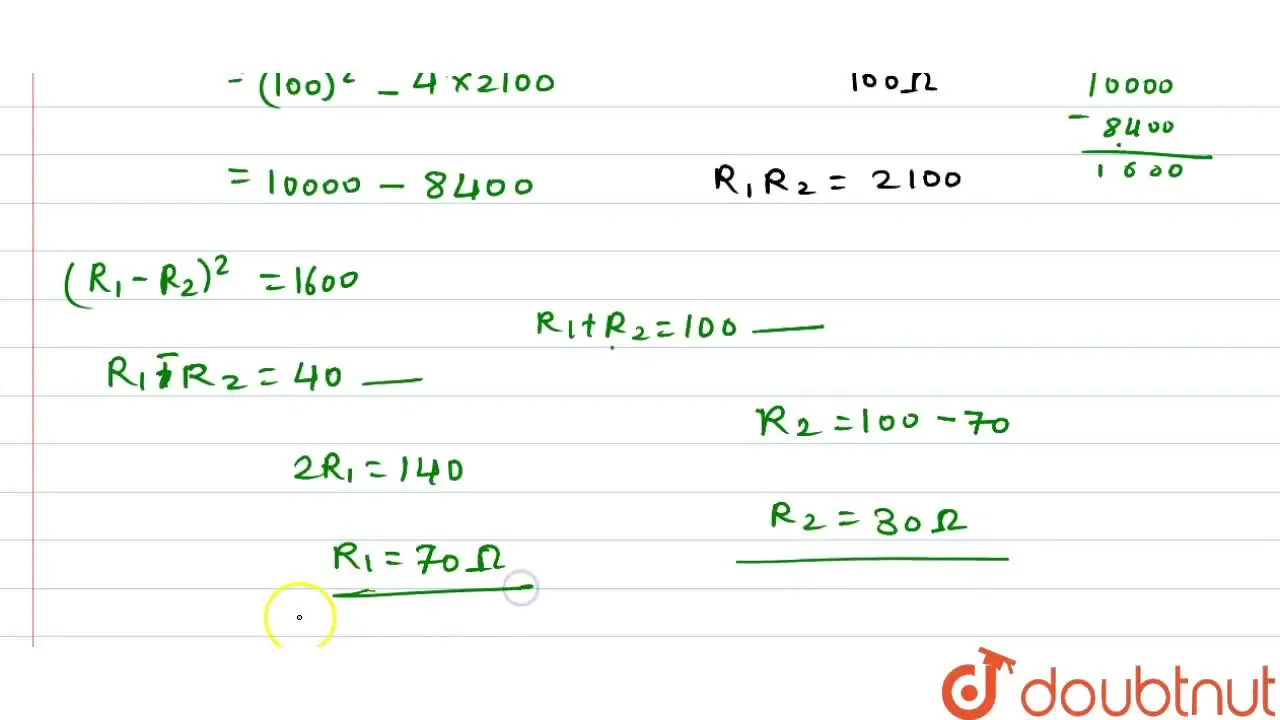 - (100)² - 4 × 2100
100Ω
10000
- 8400
1600
= 10000 - 8400
R₁R₂ = 2100
(R₁ - R₂)² = 1600
R₁ + R₂ = 100 —
R₁ - R₂ = 40 —
R₂ = 100 - 70
2R₁ = 140
R₂ = 30Ω
R₁ = 70Ω
doubtnut